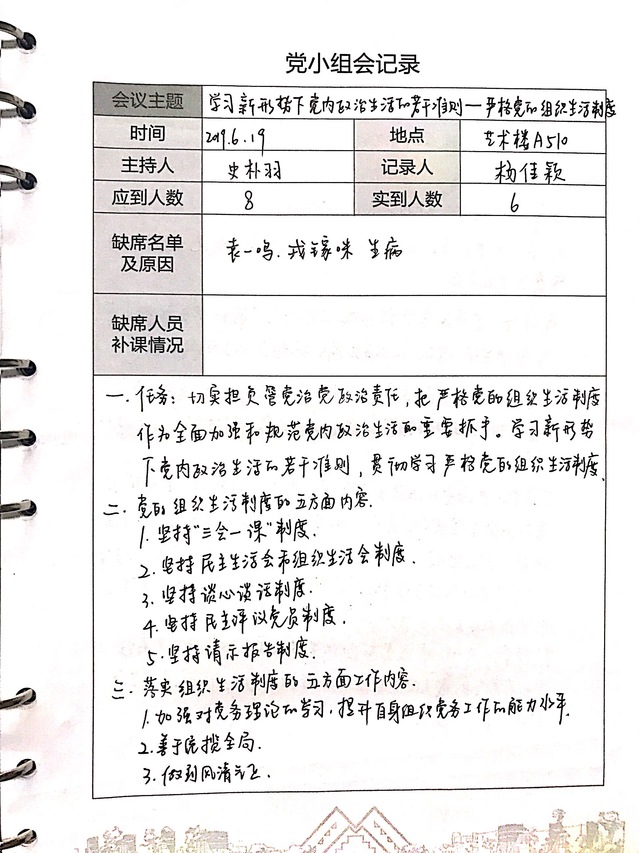 党小组会记录
会议主题 学习新形势下党内政治生活的若干准则—严格党的组织生活制度
时间 2019.6.19 地点 艺术楼A510
主持人 史朴羽 记录人 杨佳颖
应到人数 8 实到人数 6
缺席名单及原因 袁一鸣、戎镓咪 生病
缺席人员补课情况
一. 任务：切实担负管党治党政治责任，把严格党的组织生活制度
作为全面加强和规范党内政治生活的重要抓手。学习新形势
下党内政治生活的若干准则，贯彻学习严格党的组织生活制度.
二. 党的组织生活制度的五方面内容.
1. 坚持“三会一课”制度.
2. 坚持民主生活会和组织生活会制度.
3. 坚持谈心谈话制度.
4. 坚持民主评议党员制度.
5. 坚持请示报告制度.
三. 落实组织生活制度的五方面工作内容.
1. 加强对党务理论的学习，提升自身组织党务工作的能力水平.
2. 善于统揽全局.
3. 做到风清气正.